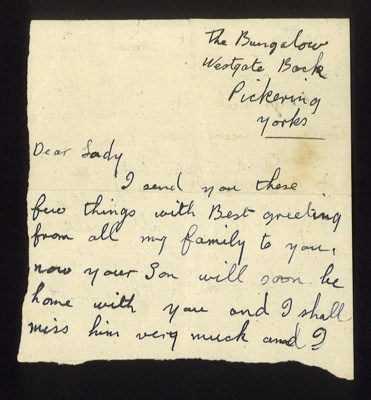 The Bungalow
Westgate Back
Pickering
Yorks
Dear Lady
I send you these
few things with Best greeting
from all my family to you.
now your Son will soon be
home with you and I shall
miss him very much and I